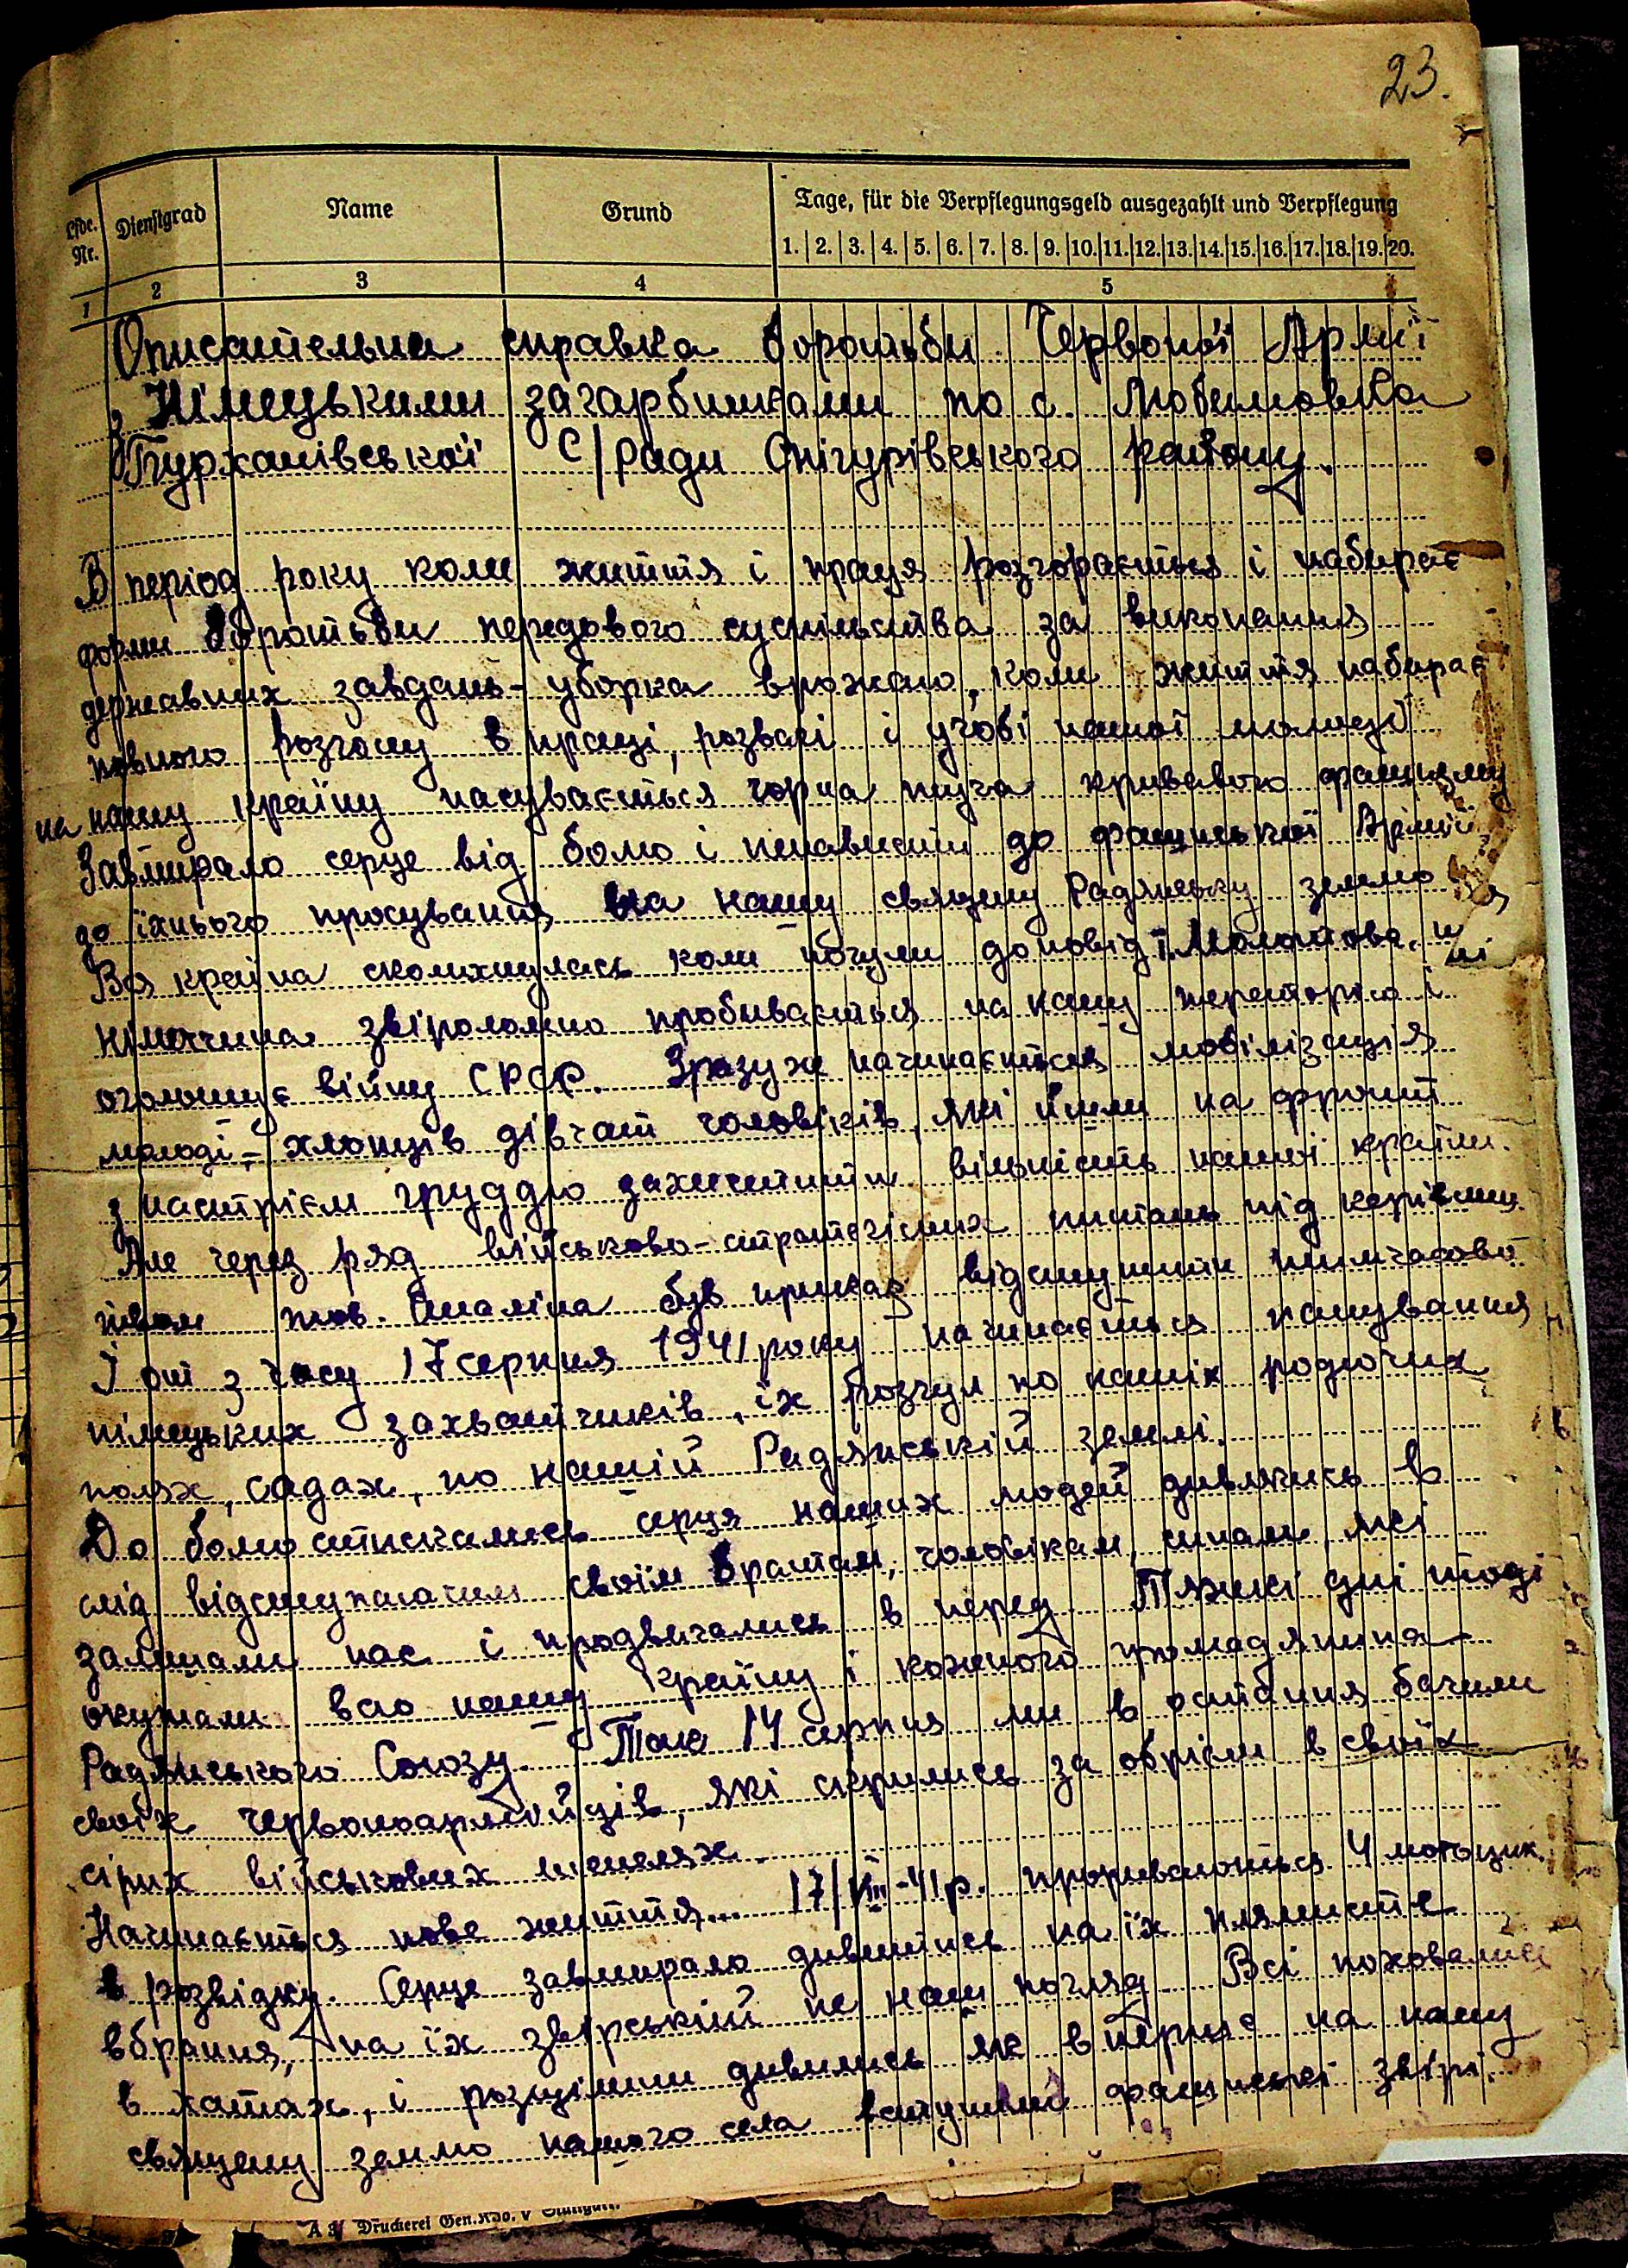 23.
Lfde. Nr.
Dienstgrad
Name
Grund
Tage, für die Verpflegungsgeld ausgezahlt und Verpflegung
1. 2. 3. 4. 5. 6. 7. 8. 9. 10. 11. 12. 13. 14. 15. 16. 17. 18. 19. 20.
1 2 3 4 5
Описательна справка боротьби Червоної Армії
з Німецькими загарбниками по с. Любимовка
Бурханівської С/Ради Снігурівського району.
В період року коли життя і праця розгорається і набирає
форми боротьби передового суспільства за виконання
державних завдань - уборка врожаю, коли життя набирає
повного розгону в праці, розвазі і учобі нашої молоді
на нашу країну насувається чорна туча кривавого фашизму
Завмирало серце від болю і ненависти до фашиської Армії
до їхнього просування на нашу священу Радянську землю
Вся країна сколихнулась коли почули доповідь т. Молотова, що
німеччина звіроломно пробивається на нашу територію і
оголошує війну СРСР. Зразу ж начинається мобілізація
молоді - хлопців дівчат чоловіків, які йшли на фронт
з настрієм груддю захистити вільність нашої країни.
Але через ряд військово-стратегісних питань під керівниц
твом тов. Сталіна був приказ відступити тимчасово
І от з часу 17 серпня 1941 року начинається панування
німецьких захватчиків, їх розгул по наших родючих
полях, садах, по нашій Радянській землі.
До болю стискались серця наших людей дивлячись в
слід відступаючим своїм братам, чоловікам, синам, які
залишали нас і продвигались в перед. Тяжкі дні тоді
окутали всю нашу країну і кожного громадянина
Радянського Союзу. Так 14 серпня ми в останнє бачили
своїх червоноармійців, які скрились за обрієм в своїх
сірих військових шинелях.
Начинається нове життя... 17/VIII-41р. прориваються 4 мотоцик.
в розвідку. Серце завмирало дивитись на їх плямисте
вбрання, на їх звірський не наш погляд. Всі поховались
в хатах, і розуміли дивились як в перше на нашу
священу землю нашого села вступили фашиські звірі.
A 3/ Druckerei Gen.Kdo. V Stuttgart